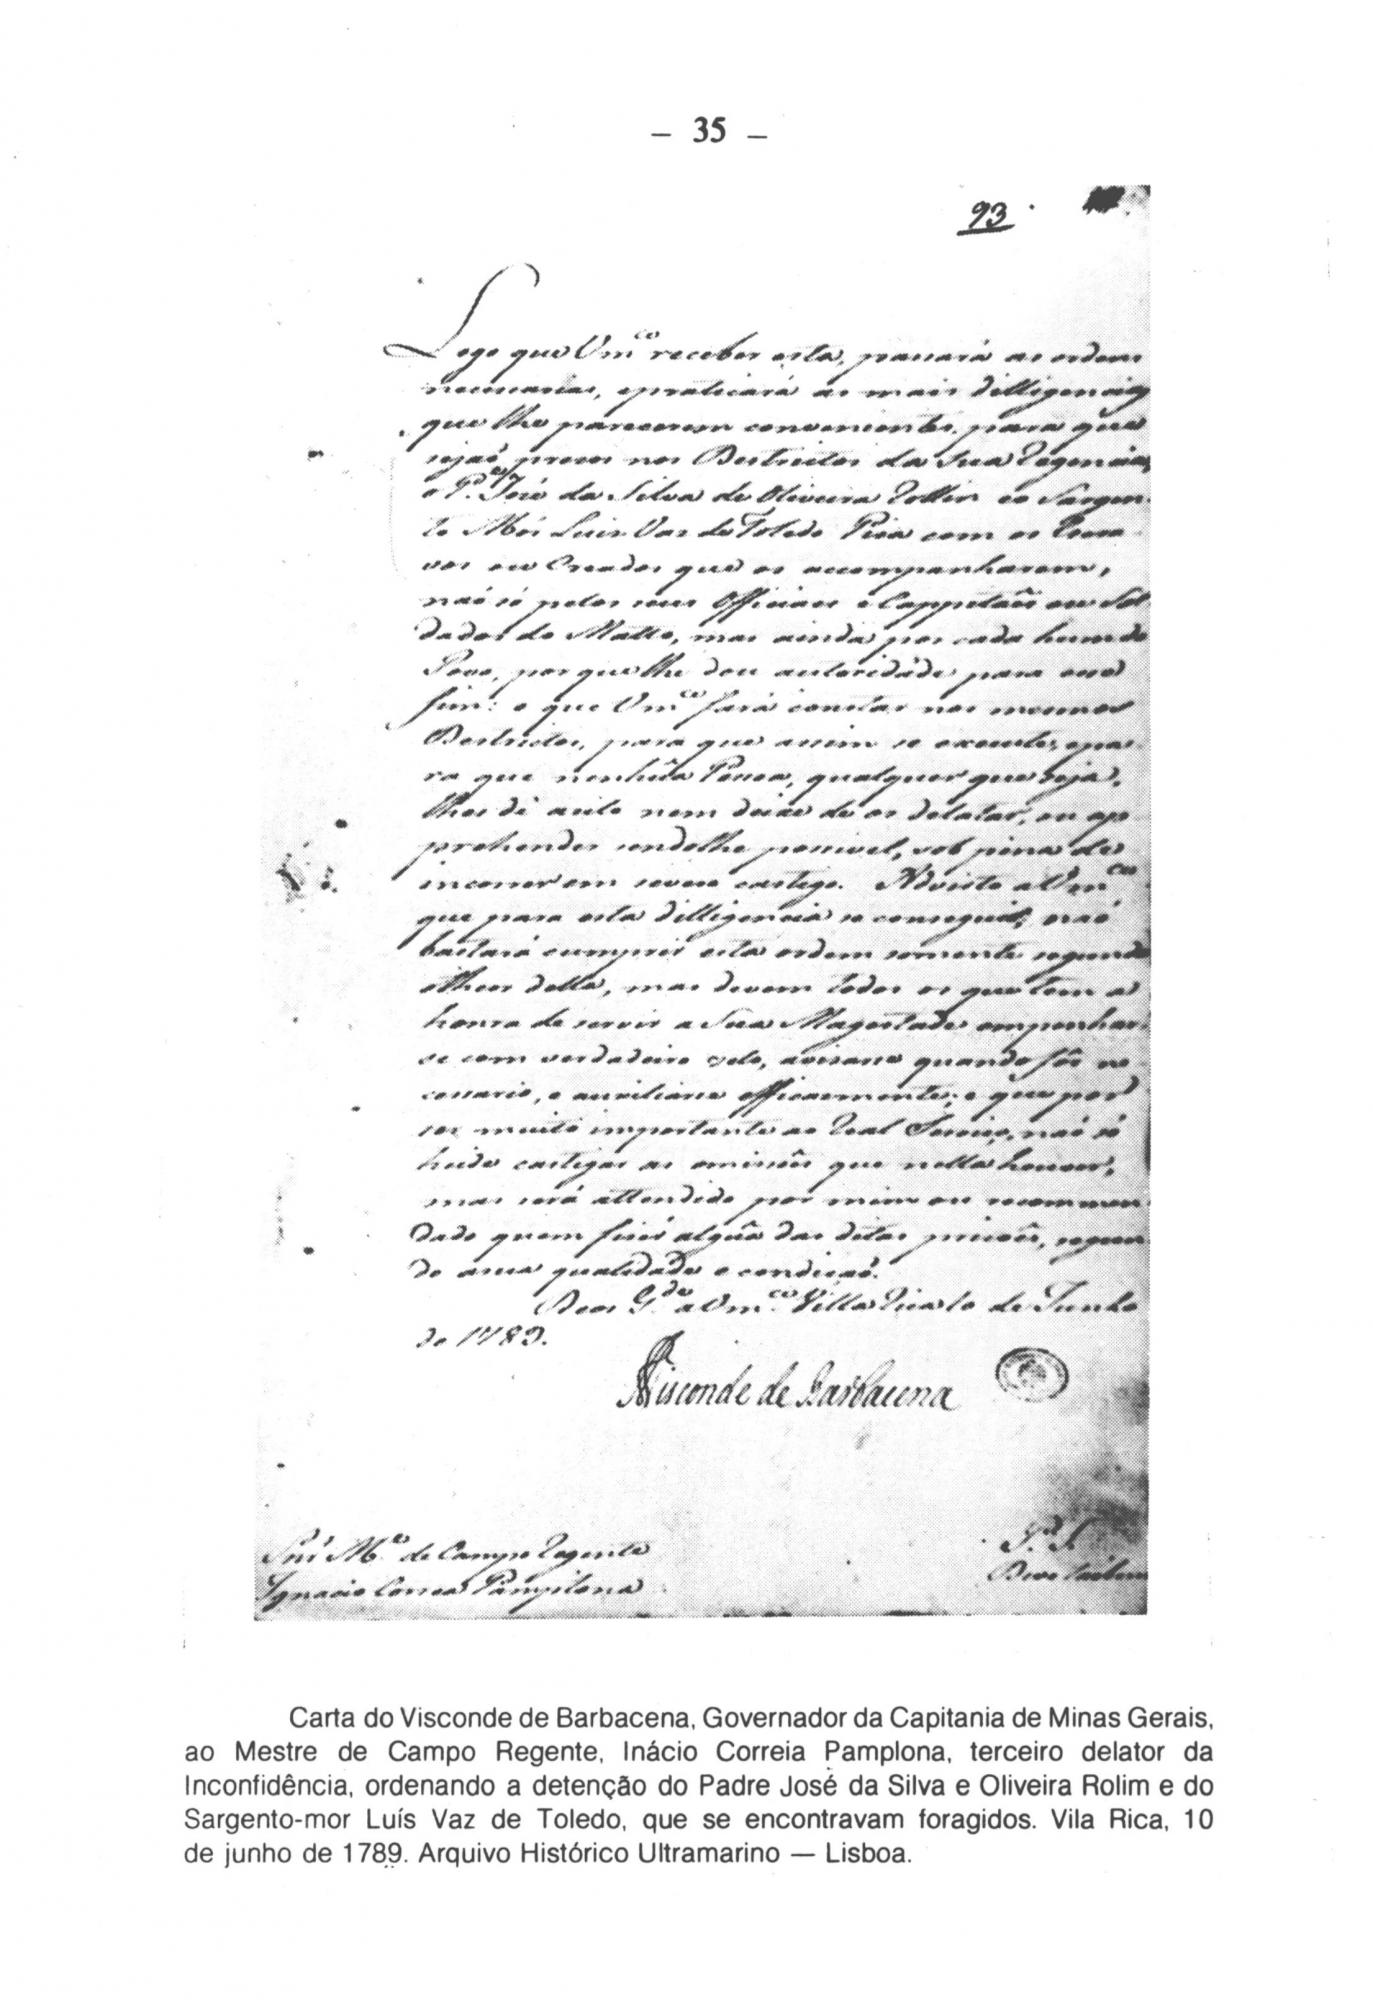 – 35 –
93
Logo que Vmce receber esta, passará as ordens
necessarias, e praticará as mais dilligencias
que lhe parecerem convenientes, para que
sejaõ prezos nos Destrictos da sua Regencia,
o Pe. José da Silva de Oliveira Rollim e o Sargen
to Mór Luis Vaz de Toledo Piza com os Escra
vos ou Creados que os accompanharem,
naõ só pelos seus Officiaes e Cappitaẽs ou Sol
dados do Matto, mas ainda por cada hum do
Povo, por que lhe dou autoridáde para esse
fim: o que Vmce fará constar nos mesmos
Destrictos, para que assim se execute, e pa
ra que nenhũa Pessoa, qualquer que seja,
lhes dê azilo nem deixe de os delatar, ou ap
prehender sendolhe possivel, sob pena de
incorrer em severo castigo. Advirto a Vmce
que para esta dilligencia se conseguir, naõ
bastará cumprir esta ordem somente segundo
o theor della, mas devem todos os que tem a
honra de servir a Sua Magestade empenhar
se com verdadeiro zelo, avizarse quando fôr ne
cessario, e auxiliarse efficasmente; e que por
ser muito importante ao Real Serviço, naõ só
heide castigar as omissoẽs que nella houver,
mas será attendido por mim ou recommen
dado quem fizer algũa das ditas prizoẽs, segun
do a sua qualidade e condiçaõ.
Deos Gde a Vmce. Villa Rica 10 de Junho
de 1789.
Visconde de Barbacena
Snr Me de Campo Regente
Ignacio Correa Pamplona
Carta do Visconde de Barbacena, Governador da Capitania de Minas Gerais,
ao Mestre de Campo Regente, Inácio Correia Pamplona, terceiro delator da
Inconfidência, ordenando a detenção do Padre José da Silva e Oliveira Rolim e do
Sargento-mor Luís Vaz de Toledo, que se encontravam foragidos. Vila Rica, 10
de junho de 1789. Arquivo Histórico Ultramarino — Lisboa.